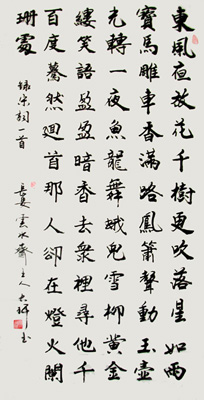 東風夜放花千樹更吹落星如雨
寶馬雕車香滿路鳳簫聲動玉壺
光轉一夜魚龍舞蛾兒雪柳黃金
縷笑語盈盈暗香去衆裡尋他千
百度驀然迴首那人卻在燈火闌
珊處
錄宋詞一首
雲水齋主人